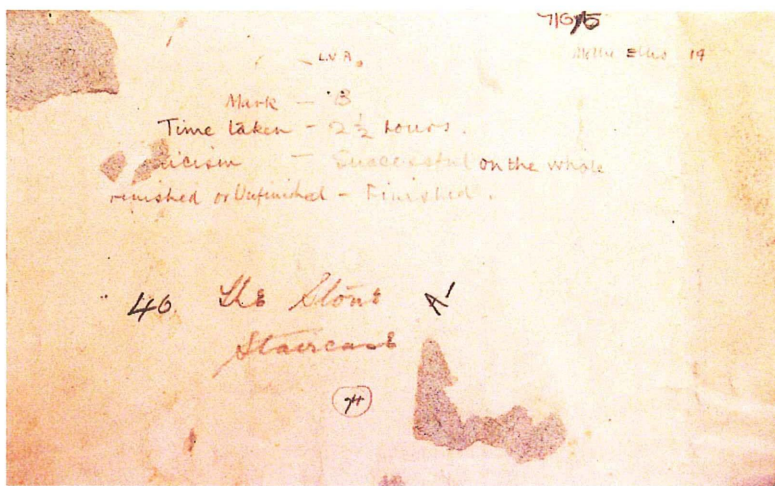 Mollie Ellis 19
L.V A.
Mark - B
Time taken - 2½ hours.
icism - Successful on the whole
Finished or Unfinished - Finished.
46 The Stone A'
Staircase